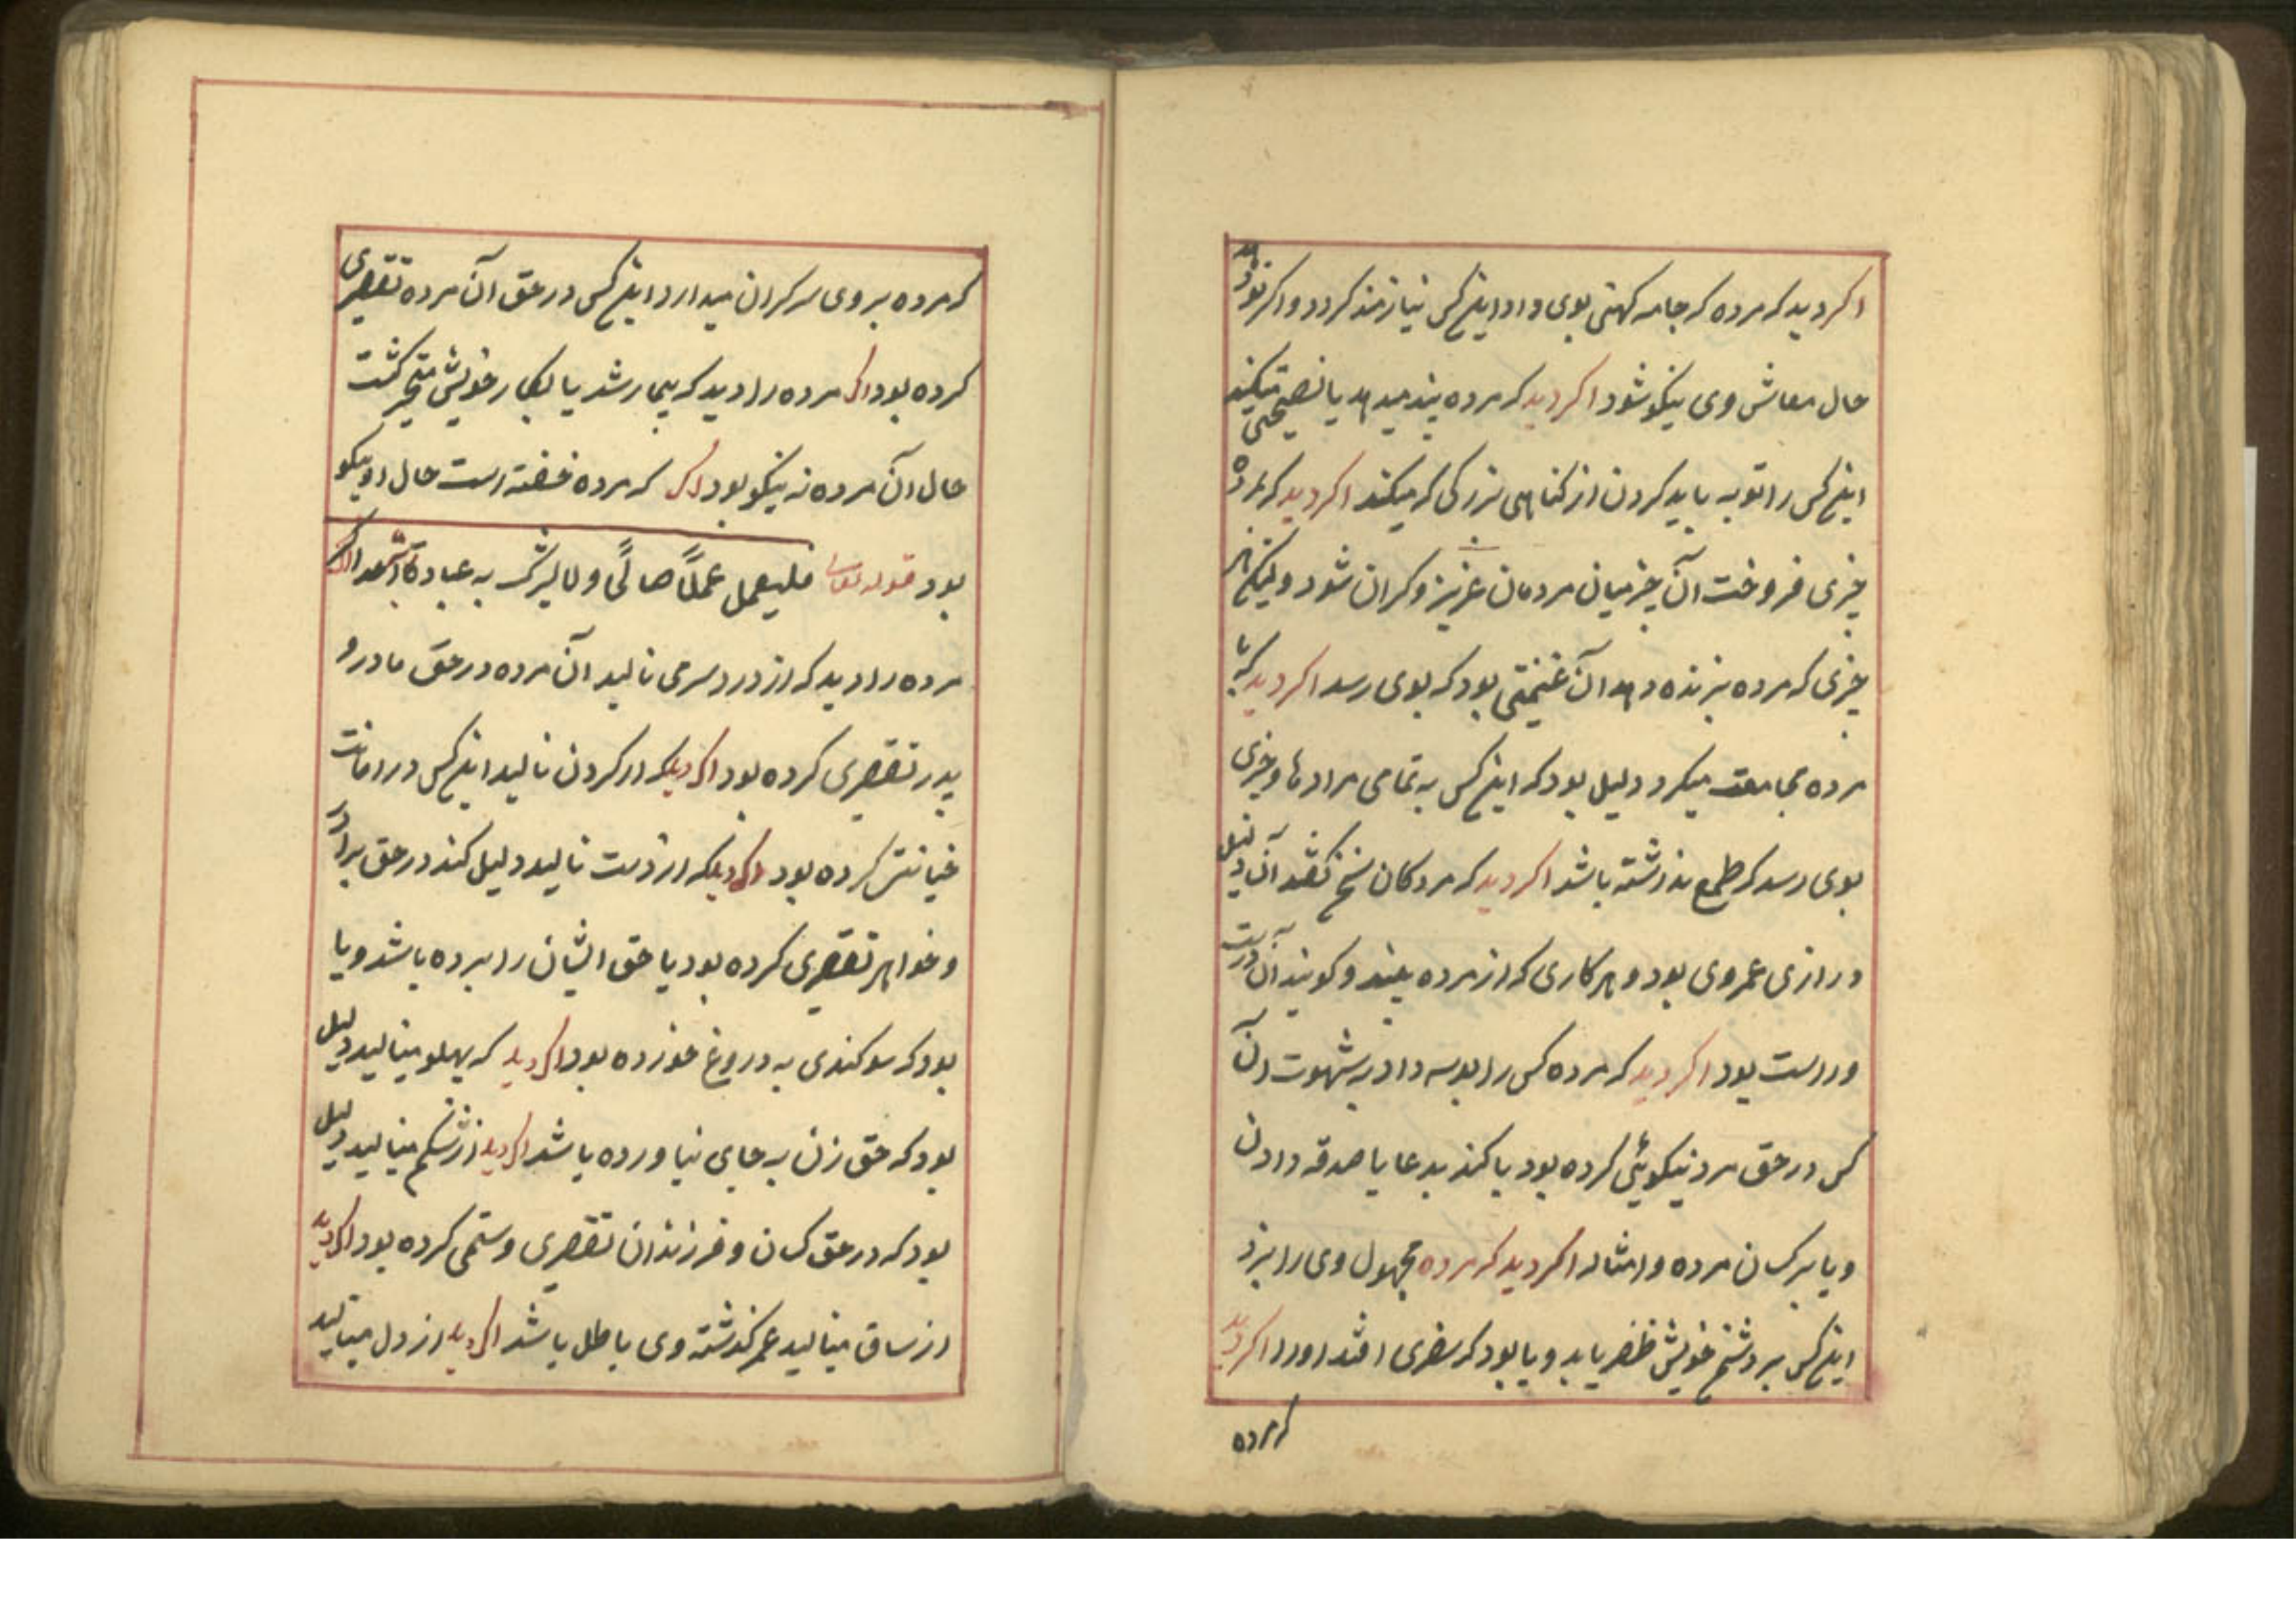 اکر دید که مرده که جامه کهنی بوی داد اینکس نیازمند کردد و اکر نو دهد
حال معاش وی نیکو شود اکر دید که مرده پند میدهد یا نصیحتی میکند
اینکس را توبه باید کردن از کناهی بزرکی که میکند اکر دید که مرده
چیزی فروخت آن چیز میان مردمان عزیز و کران شود ولیکن هر
چیزی که مرده بزنده دهد آن غنیمتی بود که بوی رسد اکر دید که با
مرده مجامعت میکرد دلیل بود که اینکس به تمامی مرادها و چیزی
بوی رسد که طمع نداشته باشد اکر دید که مردکان سخن کفتند آن دلیل
درازی عمر وی بود و هر کاری که از مرده بیند و کویند آن درست
و راست بود اکر دید که مرده کس را بوسه داد به شهوت آن
کس در حق مرد نیکوئی کرده بود یا کند بدعا یا صدقه دادن
و یا بر کسان مرده و امثاله اکر دید که مرده مجهول وی را بزد
اینکس بر دشمن خویش ظفر یابد و یا بود که سفری افتد او را اکر دید
که مرده
که مرده بروی سر کران میدارد اینکس در حق آن مرده تقصیری
کرده بود اکر مرده را دید که بیمار شد یا بکار خویش متحیر کشت
حال آن مرده نه نیکو بود اکر که مرده خفته است حال او نیکو
بود قوله تعالی فلیعمل عملًا صالحًا ولا یشرک به عبادة ربه احدا اکر
مرده را دید که از درد سر می نالید آن مرده در حق مادر و
پدر تقصیری کرده بود اکر دید که از کردن نالید اینکس در امانت
خیانتش کرده بود اکر دید که از دست نالید دلیل کند در حق برادر
و خواهر تقصیری کرده بود یا حق ایشان را برده باشد و یا
بود که سوکندی به دروغ خورده بود اکر دید که پهلو مینالید دلیل
بود که حق زن به جای نیاورده باشد اکر دید از شکم مینالید دلیل
بود که در حق کسان و فرزندان تقصیری و ستمی کرده بود اکر دید
از ساق مینالید عمر کذشته وی باطل باشد اکر دید از دل مینالید